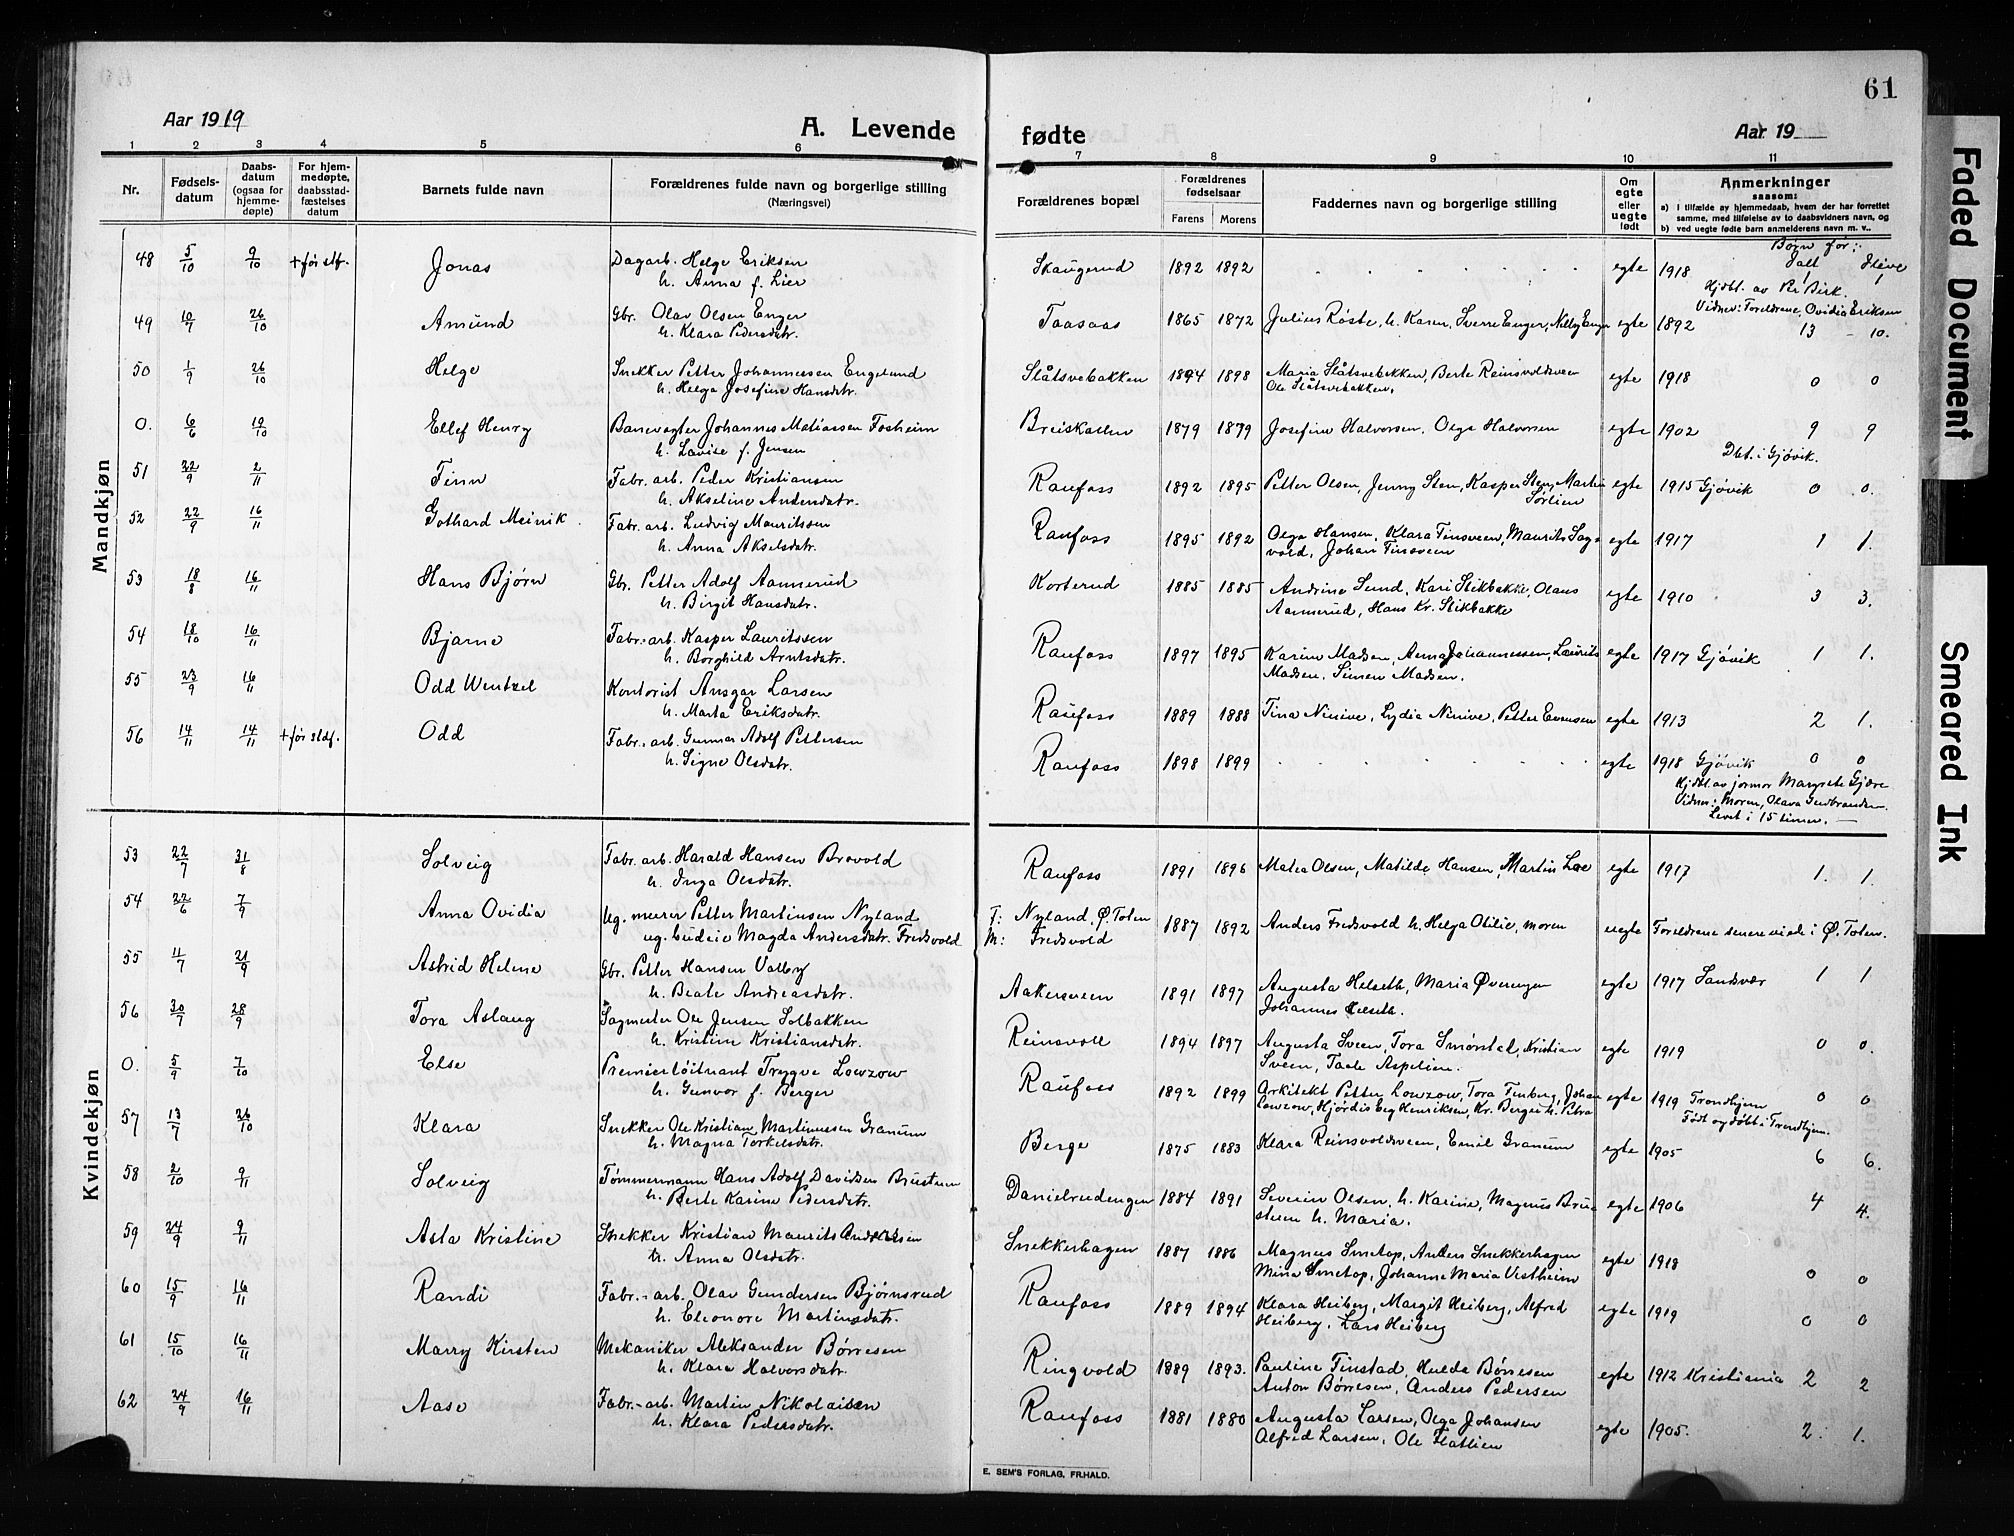 61
Aar 1919
A. Levende
fødte
Aar 19
1 2 3 4 5 6
7 8 9 10 11
Nr.
Fødsels-
datum
Daabs-
datum
(ogsaa for
hjemme-
døpte)
For hjem-
medøpte,
daabsstad-
fæstelses
datum
Barnets fulde navn
Forældrenes fulde navn og borgerlige stilling
(Næringsvei)
Forældrenes bopæl
Forældrenes
fødselsaar
Farens Morens
Faddernes navn og borgerlige stilling
Om
egte
eller
uegte
født
Anmerkninger
saasom:
a) I tilfælde av hjemmedaab, hvem der har forrettet
samme, med tilføielse av to daabsvidners navn, og
b) ved uegte fødte barn anmelderens navn m. v..
Mandkjøn
Børn før:
48 5/10 9/10 + før stf. Jonas Dagarb. Helge Eriksen Skaugerud 1892 1892 egte 1918 Ialt Ilive
h. Anna f. Lier 1 1
Hjdbt. av Per Birk.
Vidner: Foreldrene, Ovidia Eriksen
49 10/7 26/10 Amund Gbr. Olav Olsen Enger Taasaas 1865 1872 Julius Røste, h. Karen, Sverre Enger, Nelly Enger egte 1892 13 - 10.
h. Klara Pedersdatr.
50 1/9 26/10 Helge Snekker Petter Johannessen Engelund Slåtsvebakken 1894 1898 Maria Slåtsvebakken, Berte Reinsvoldsveen egte 1918 0 0
h. Helga Josefine Hansdatr. Ole Slåtsvebakken.
0. 6/6 19/10 Ellef Henry Banevagter Johannes Matiassen Fosheim Breiskallen 1879 1879 Josefine Halvorsen, Olga Halvorsen egte 1902 9 9
h. Lovise f. Jensen Dbt. i Gjøvik.
51 22/9 2/11 Finn Fabr. arb. Peder Kristiansen Raufoss 1892 1895 Petter Olsen, Jenny Sten, Kasper Sten, Martin egte 1915 Gjøvik 0 0.
h. Akseline Andersdatr. Sørlien
52 22/9 16/11 Gothard Meinik. Fabr. arb. Ludvig Mauritssen Raufoss 1895 1892 Olga Hansen, Klara Finsveen, Maurits Sogs- egte 1917 1 1.
h. Anna Akselsdatr. vold, Johan Finsveen
53 18/8 16/11 Hans Bjørn Gbr. Petter Adolf Aannerud Korterud 1885 1885 Andrine Sund, Kari Stikbakke, Olaus egte 1910 3 3.
h. Birgit Hansdatr. Aannerud, Hans Kr. Stikbakke
54 18/10 16/11 Bjarne Fabr.-arb. Kasper Lauritssen Raufoss 1897 1895 Karine Madsen, Anna Johannessen, Laurits egte 1917 Gjøvik 1 1.
h. Borghild Arntsdatr. Madsen, Simen Madsen.
55 23/9 16/11 Odd Wentzel Kontorist Ansgar Larsen Raufoss 1889 1888 Tina Ninive, Lydia Ninive, Petter Evensen egte 1913 2 1.
h. Marta Eriksdatr.
56 14/11 14/11 + før stdf. Odd Fabr.-arb. Gunnar Adolf Pettersen Raufoss 1898 1899 egte 1918 Gjøvik 0 0
h. Signe Olsdatr. Hjdbt. av jormor Margrete Gjære
Vidner: Moren, Olava Gudbrandsen.
Levet i 15 timer. —
Kvindekjøn
53 22/7 31/8 Solveig Fabr. arb. Harald Hansen Brovold Raufoss 1891 1896 Matea Olsen, Matilde Hansen, Martin Loe egte 1917 1. 1.
h. Inga Olsdatr.
54 22/6 7/9 Anna Ovidia Ug. murer Petter Martinsen Nyland F: Nyland, Ø. Toten 1887 1892 Anders Fredsvold h. Helga Otilie, moren uegte Foreldrene senere viede i Ø. Toten.
ug. budeie Magda Andersdatr. Fredsvold M: Fredsvold
55 11/7 21/9 Astrid Helene Gbr. Petter Hansen Valby Aakersveen 1891 1897 Augusta Helseth, Maria Øverengen egte 1917 Sandsvær 1 1
h. Beate Andreasdatr. Johannes Helseth.
56 30/7 28/9 Tora Aslaug Sagmester Ole Jensen Solbakken Reinsvoll 1894 1897 Augusta Sveen, Tora Smørstal, Kristian egte 1919 0 0.
h. Kristine Kristiansdatr. Sveen, Taale Aspelien.
0. 5/9 7/10 Else Premierløitnant Trygve Lowzow Raufoss 1892 1899 Arkitekt Petter Lowzow, Tora Finberg, Johan egte 1919 Trondhjem 0 0
h. Gunvor f. Berger Lowzow, Hjørdis Leg Henriksen, Kr. Berger h. Petra Født og døbt i Trondhjem.
57 13/7 26/10 Klara Snekker Ole Kristian Martinussen Granum Berge 1875 1883 Klara Reinsvoldsveen, Emil Granum egte 1905 6 6.
h. Magna Torkelsdatr.
58 2/10 9/11 Solveig Tømmermann Hans Adolf Davidsen Brusteen Danielrudengen 1884 1891 Severin Olsen, h. Karine, Magnus Bru- egte 1906 4 4.
h. Berte Karine Pedersdatr. steen h. Maria.
59 24/9 9/11 Asta Kristine Snekker Kristian Maurits Andersen Snekkerhagen 1887 1886 Magnus Smetop, Anders Snekkerhagen egte 1918 0 0
h. Anna Olsdatr. Mina Smetop, Johanne Maria Vestheim
60 15/9 16/11 Randi Fabr.-arb. Olav Gundersen Bjørnsrud Raufoss 1889 1894 Klara Heiberg, Margit Heiberg, Alfred egte 1919 0 0
h. Eleonore Martinsdatr. Heiberg, Lars Heiberg
61 15/10 16/11 Marry Kirsten Mekaniker Aleksander Børresen Ringvold 1889 1893. Pauline Finstad, Hulda Børresen egte 1912 Kristiania 2 2
h. Klara Halvorsdatr. Anton Børresen, Anders Pedersen
62 24/9 16/11 Aase Fabr.-arb. Martin Nikolaisen Raufoss 1881 1880 Augusta Larsen, Olga Johansen egte 1905. 2. 1.
h. Klara Pedersdatr. Alfred Larsen, Ole Flatlien
E. SEM'S FORLAG, FR.HALD.
Faded Document
Smeared Ink